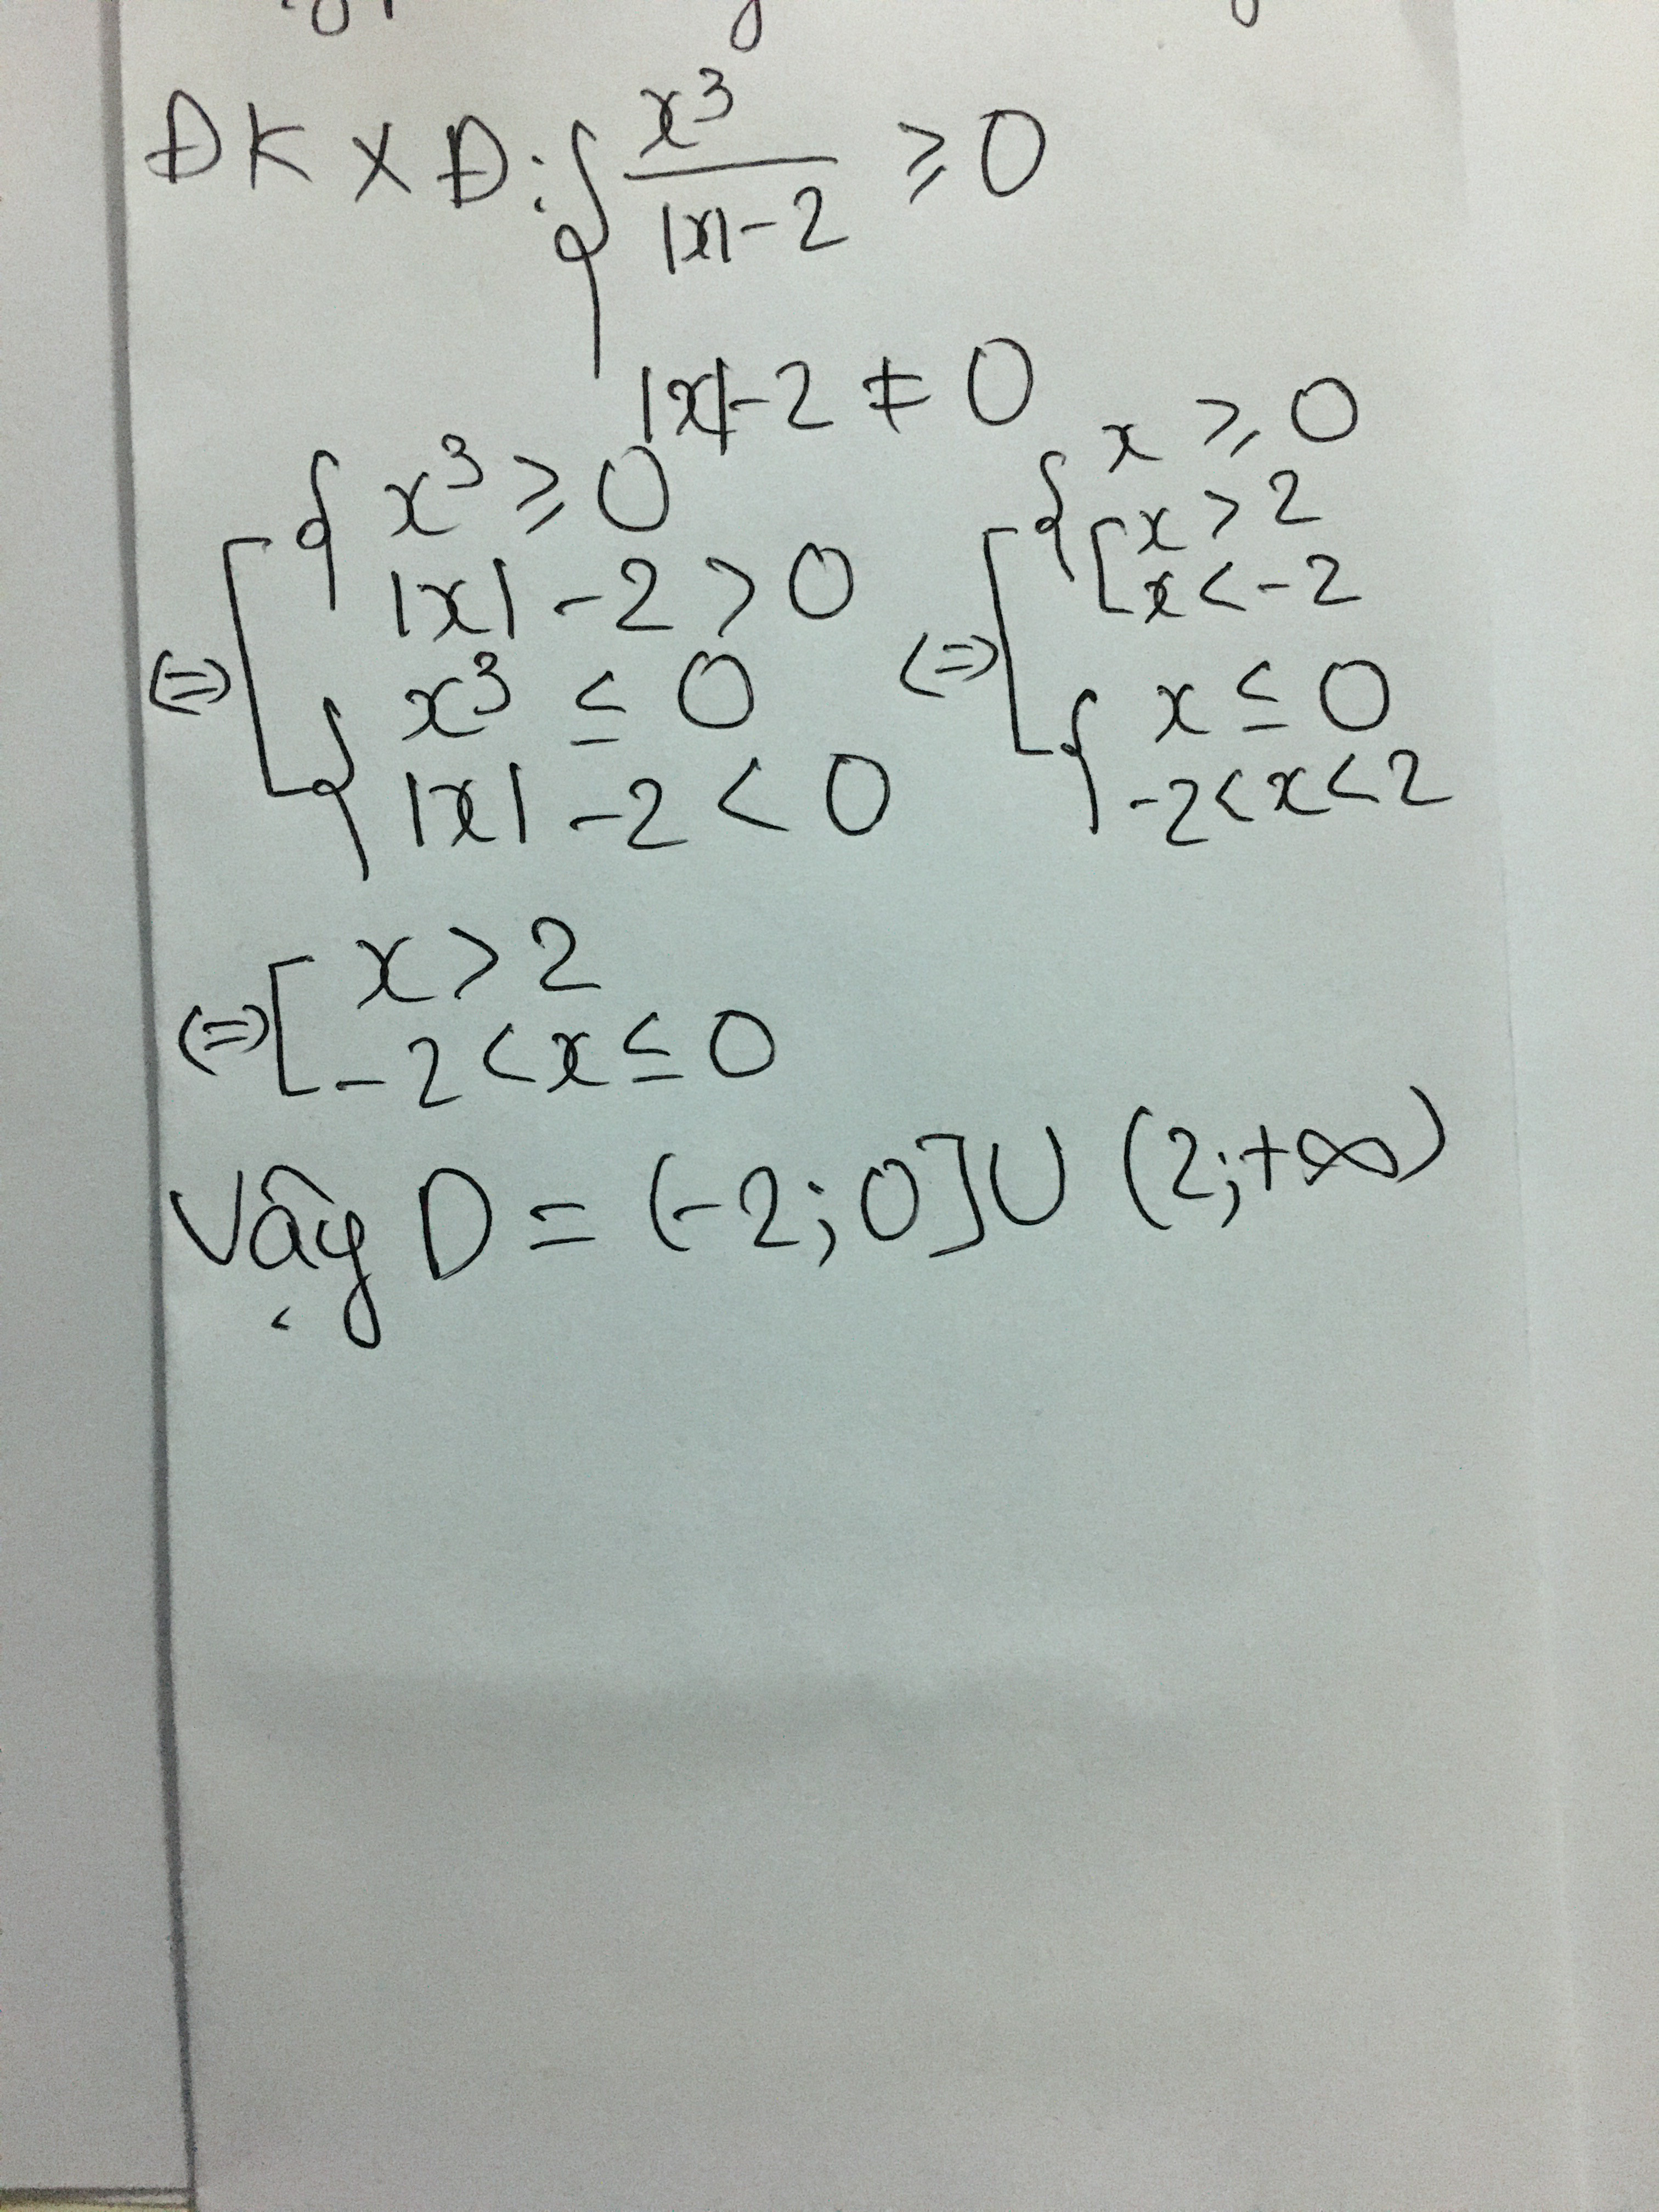 ĐKXĐ: { x³/(|x|-2) ≥ 0
|x|-2 ≠ 0
⇔ [ { x³ ≥ 0
|x| -2 > 0
{ x³ ≤ 0
|x| -2 < 0
⇔ [ { x ≥ 0
[ x > 2
x < -2
{ x ≤ 0
-2 < x < 2
⇔ [ x > 2
-2 < x ≤ 0
Vậy D = (-2; 0] ∪ (2; +∞)